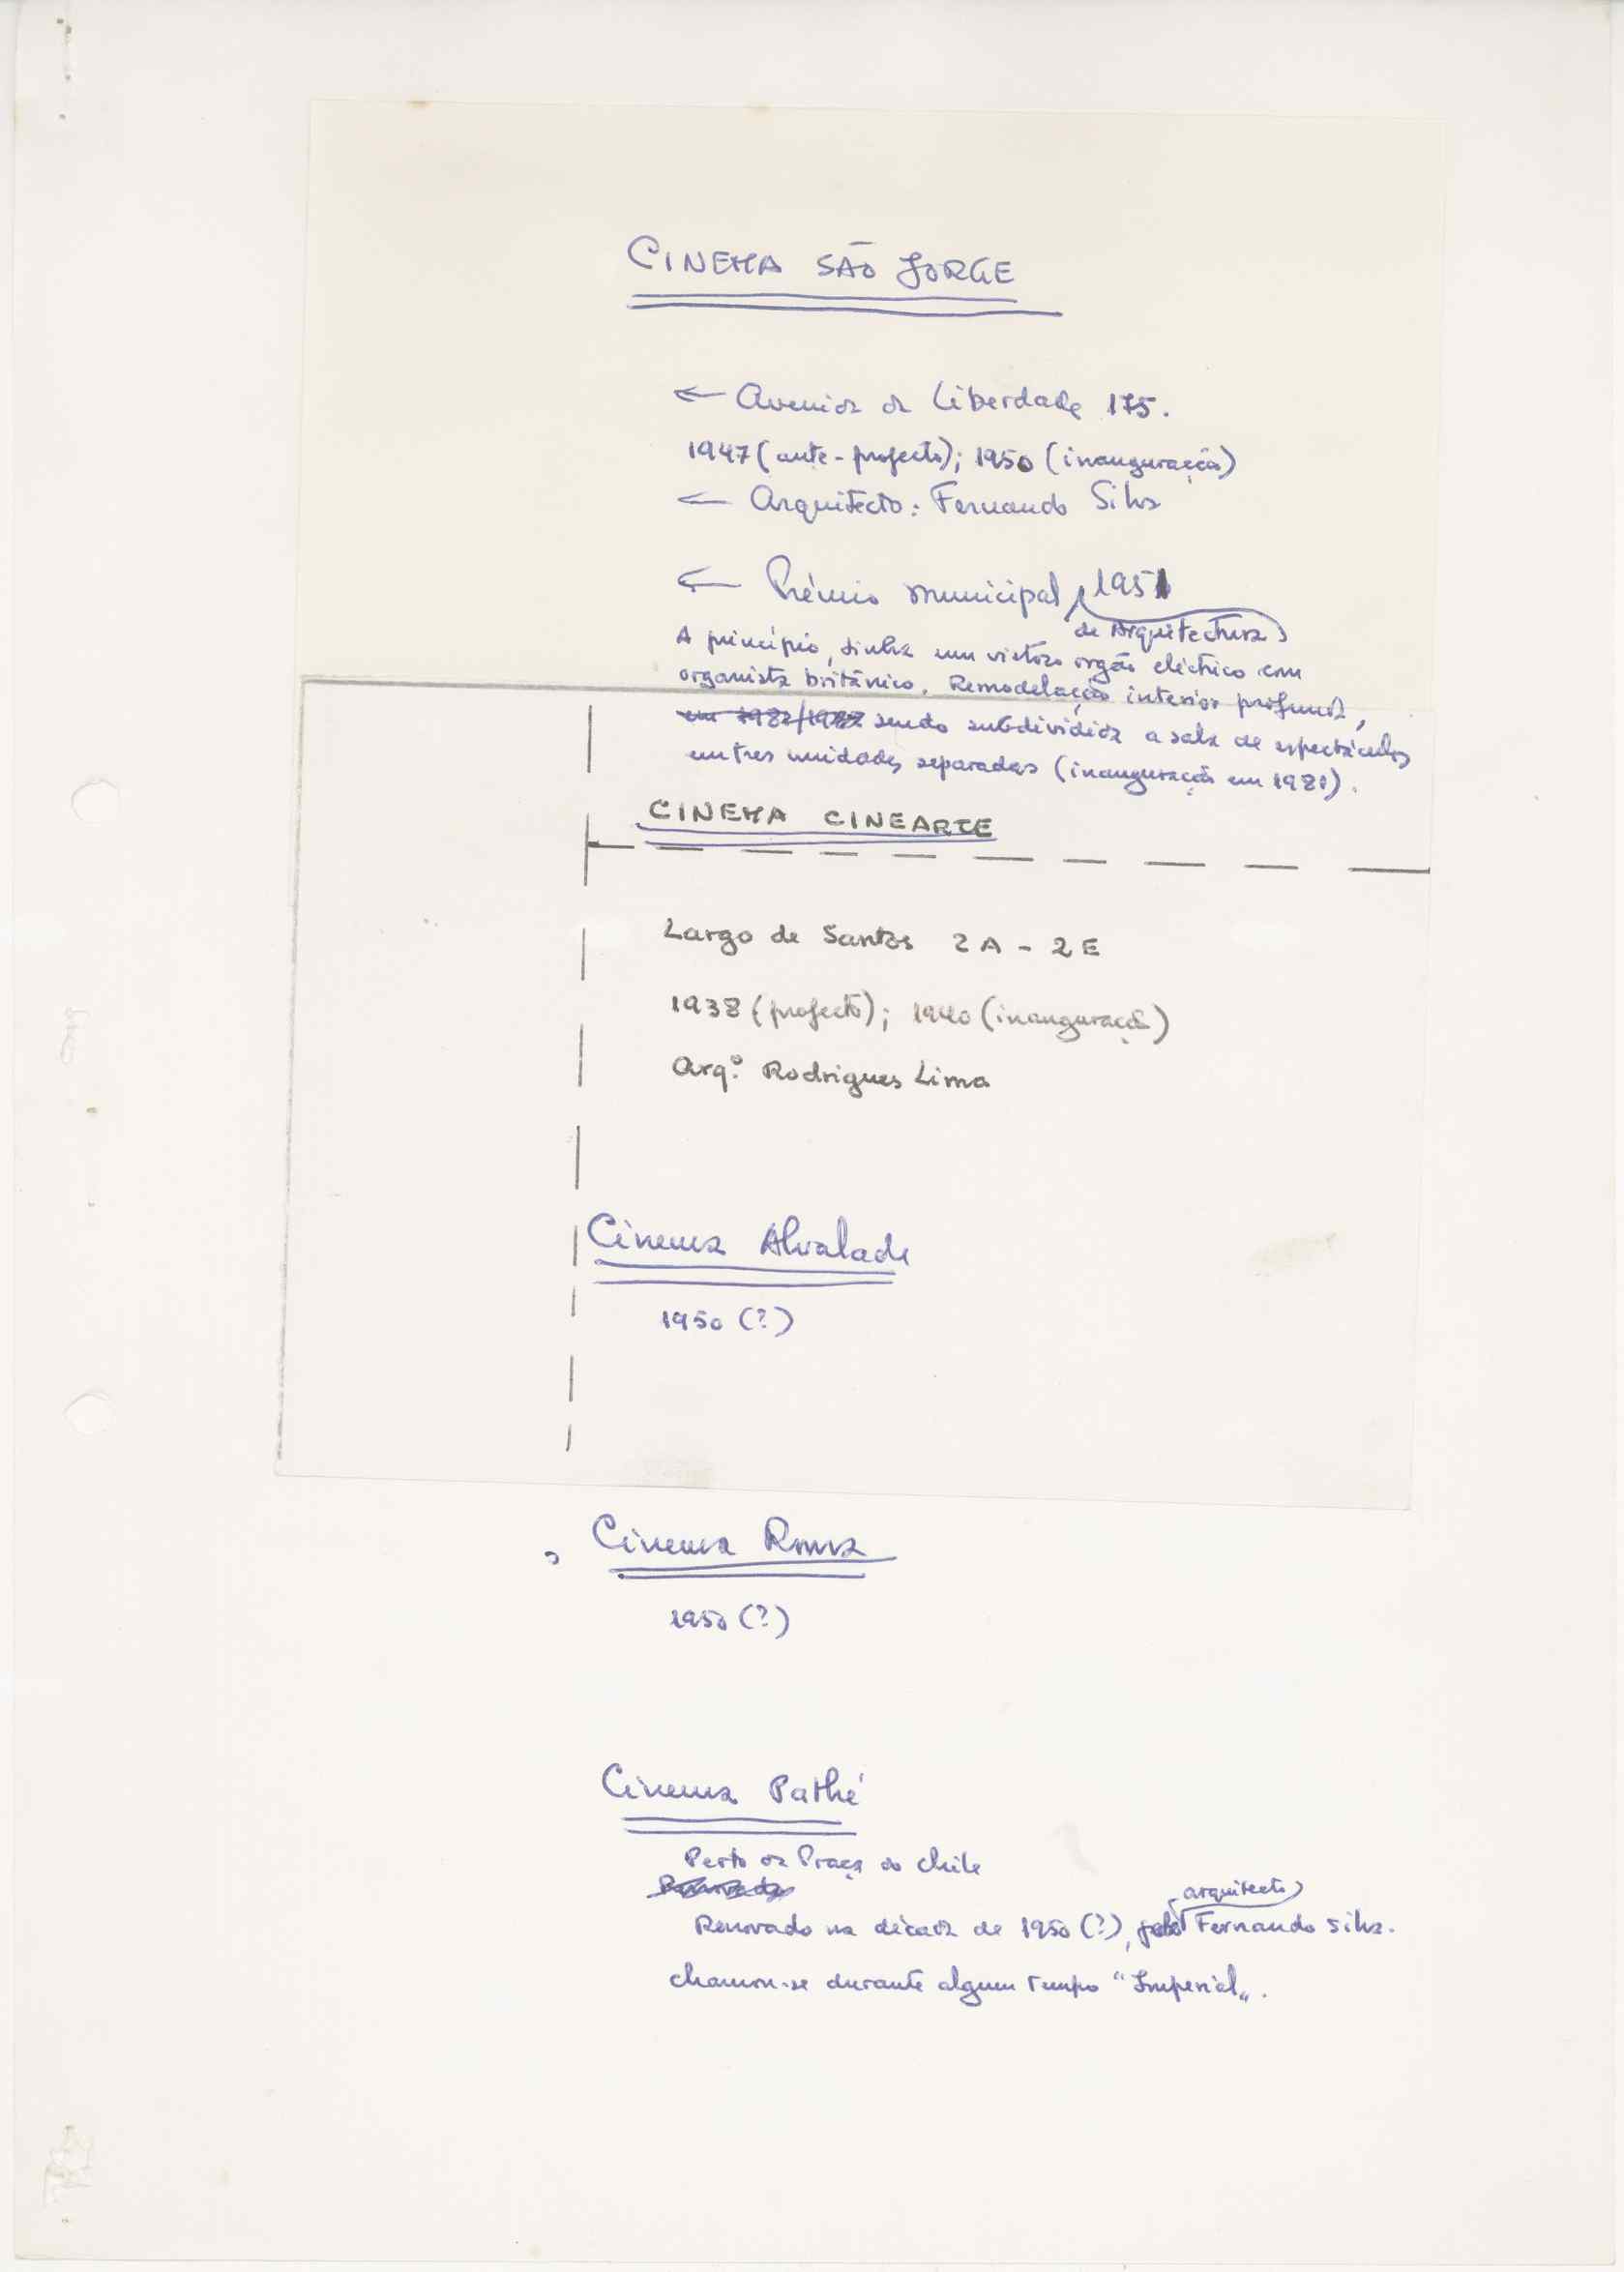 CINEMA SÃO JORGE
← Avenida da Liberdade 175.
1947 (ante-projecto); 1950 (inauguração)
← Arquitecto: Fernando Silva
← Prémio municipal de Arquitectura 1951
A princípio, tinha um vistoso orgão eléctrico com
organista britânico. Remodelação interior profunda,
sendo subdividida a sala de espectáculos
em tres unidades separadas (inauguração em 1981).
CINEMA CINEARTE
Largo de Santos 2A - 2E
1938 (projecto); 1940 (inauguração)
Arqº. Rodrigues Lima
Cinema Alvalade
1950 (?)
Cinema Roma
1950 (?)
Cinema Pathé
Perto da Praça do Chile
Renovado na década de 1950 (?), pelo arquitecto Fernando Silva.
Chamou-se durante algum tempo "Imperial".